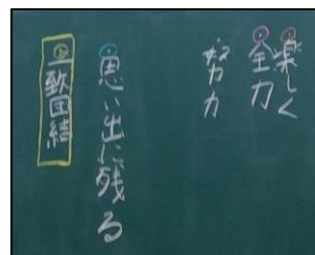 楽しく
全力
努力
思い出に残る
一致団結